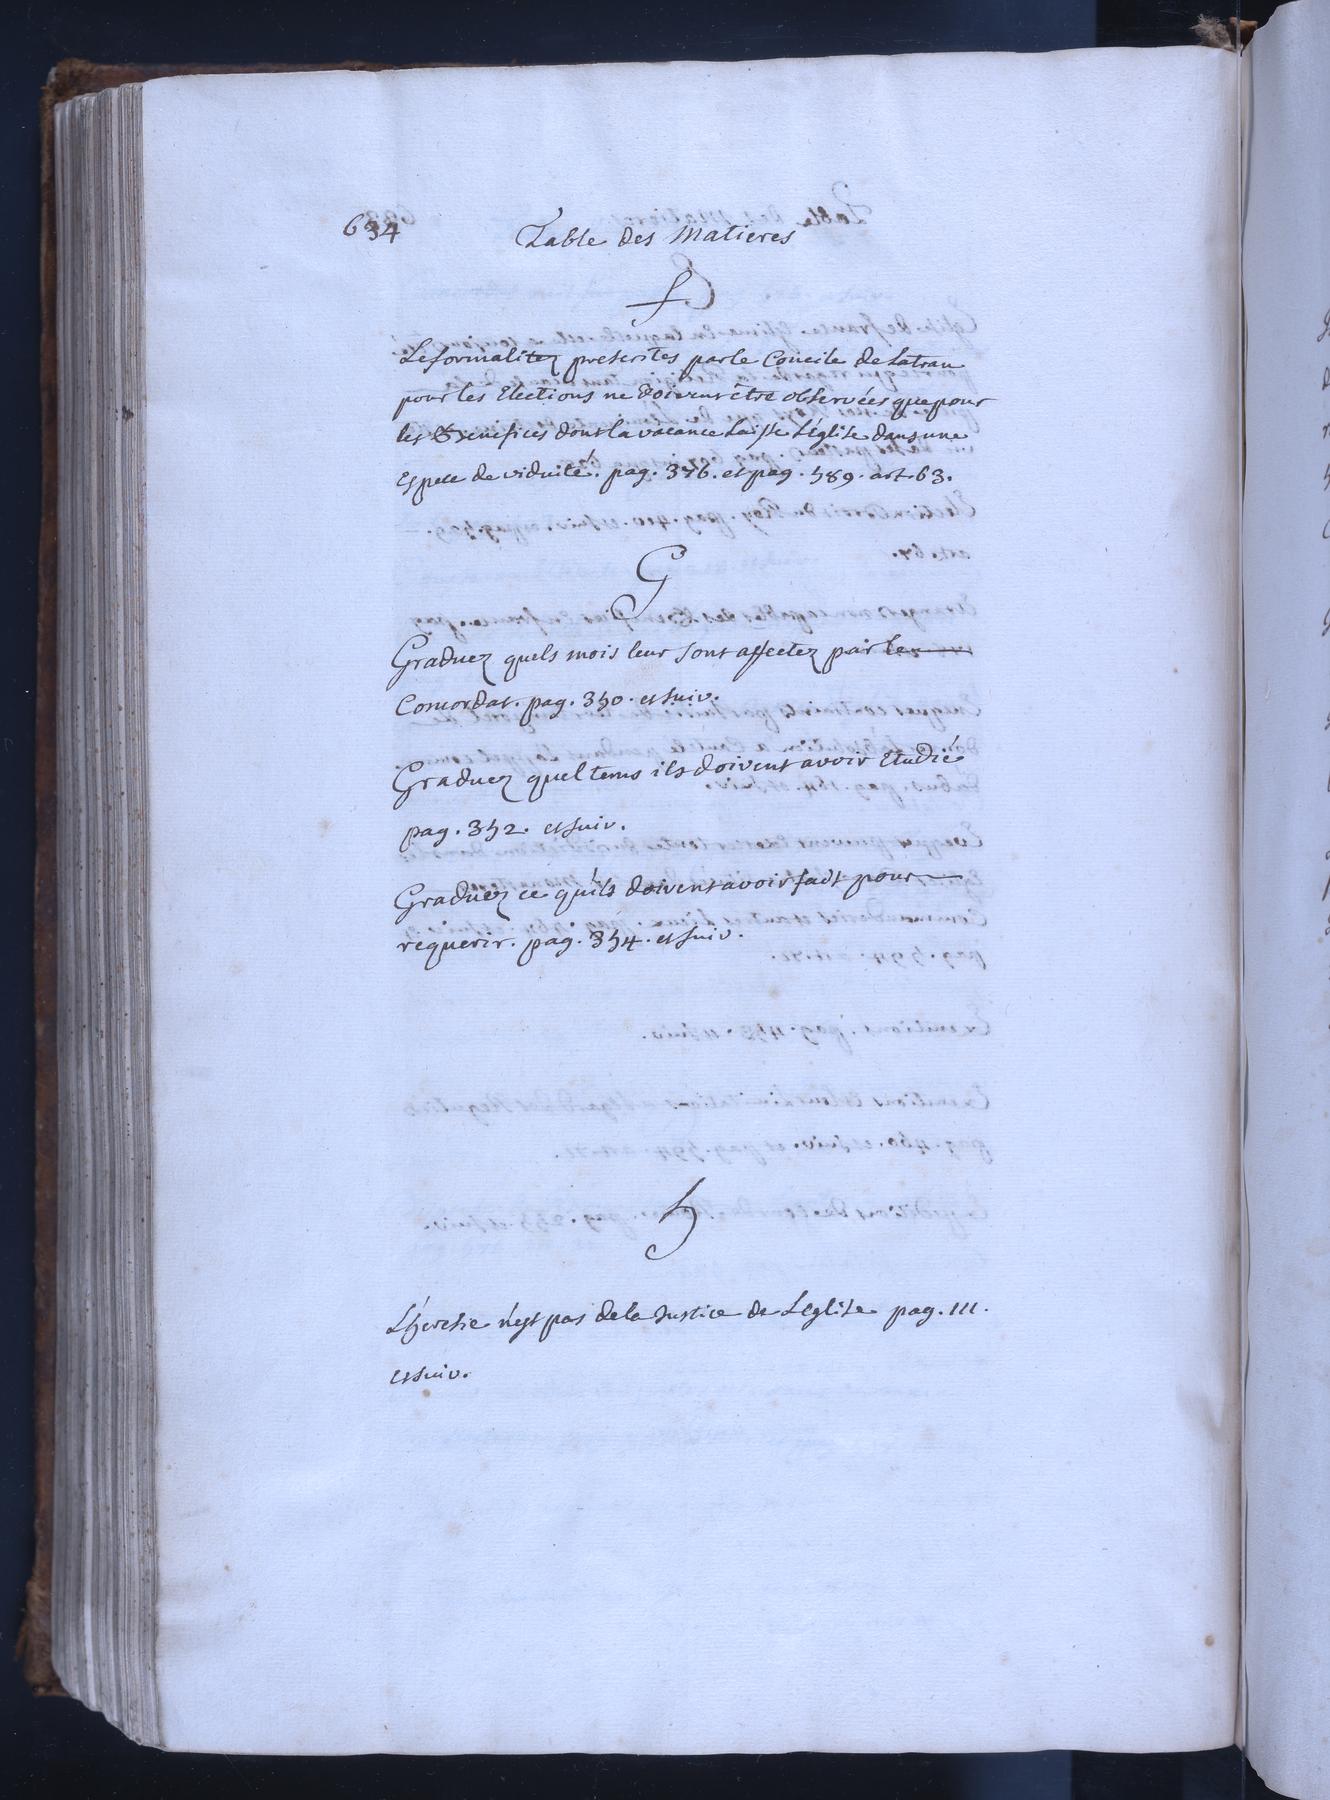 634
Table des Matieres
f
Leformalitez prescrites par le Concile de Latran
pour les Elections ne doivent être observées que pour
les Benefices dont la vacance Laisse L'église dans une
Espece de viduité. pag. 376. et pag. 589. art. 63.
G
Graduez quels mois leur sont affectez par le
Concordat. pag. 350. et suiv.
Graduez quel tems ils doivent avoir Etudié
pag. 352. et suiv.
Graduez ce qu'ils doivent avoir fait pour
requerir. pag. 354. et suiv.
h
L'heresie n'est pas de la Justice de L'eglise pag. 111.
et suiv.